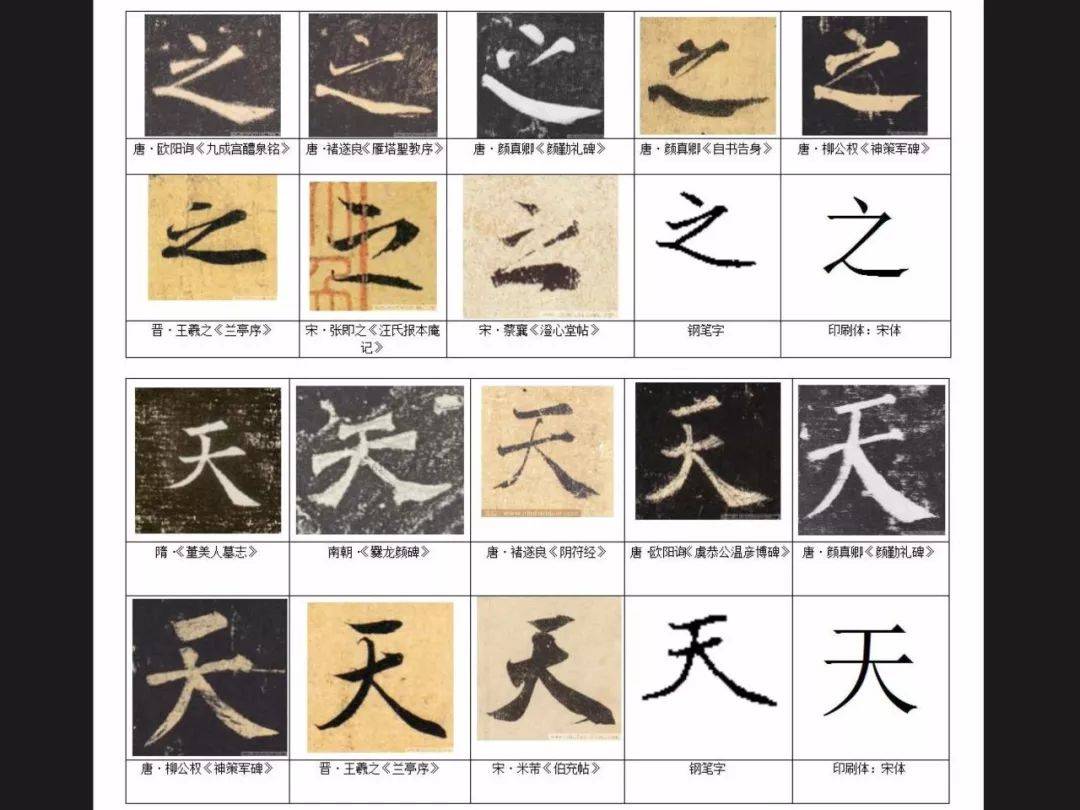 之 之 之 之 之
唐·欧阳询《九成宫醴泉铭》 唐·褚遂良《雁塔聖教序》 唐·颜真卿《颜勤礼碑》 唐·颜真卿《自书告身》 唐·柳公权《神策军碑》
之 之 之 之 之
晋·王羲之《兰亭序》 宋·张即之《汪氏报本庵记》 宋·蔡襄《澄心堂帖》 钢笔字 印刷体：宋体
天 天 天 天 天
隋·《董美人墓志》 南朝·《爨龙颜碑》 唐·褚遂良《阴符经》 唐·欧阳询《虞恭公温彦博碑》 唐·颜真卿《颜勤礼碑》
天 天 天 天 天
唐·柳公权《神策军碑》 晋·王羲之《兰亭序》 宋·米芾《伯充帖》 钢笔字 印刷体：宋体